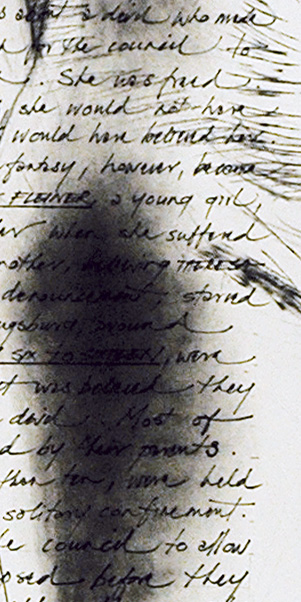 a devil who made
for the council to
. She was freed.
she would not have
would have behaved her.
fantasy, however, became
FLEINER, a young girl,
when she suffered
mother, believing THERESE
denouncement, starved
augsburg, around
SIX TO SIXTEEN, were
it was believed they
devil. Most of
d by their parents.
than ten, were held
solitary confinement.
council to allow
before they